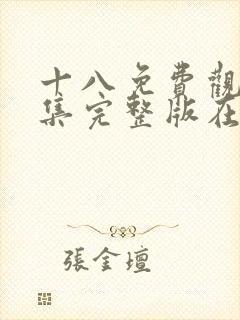 十八免費觀
集完整版在
張金壇